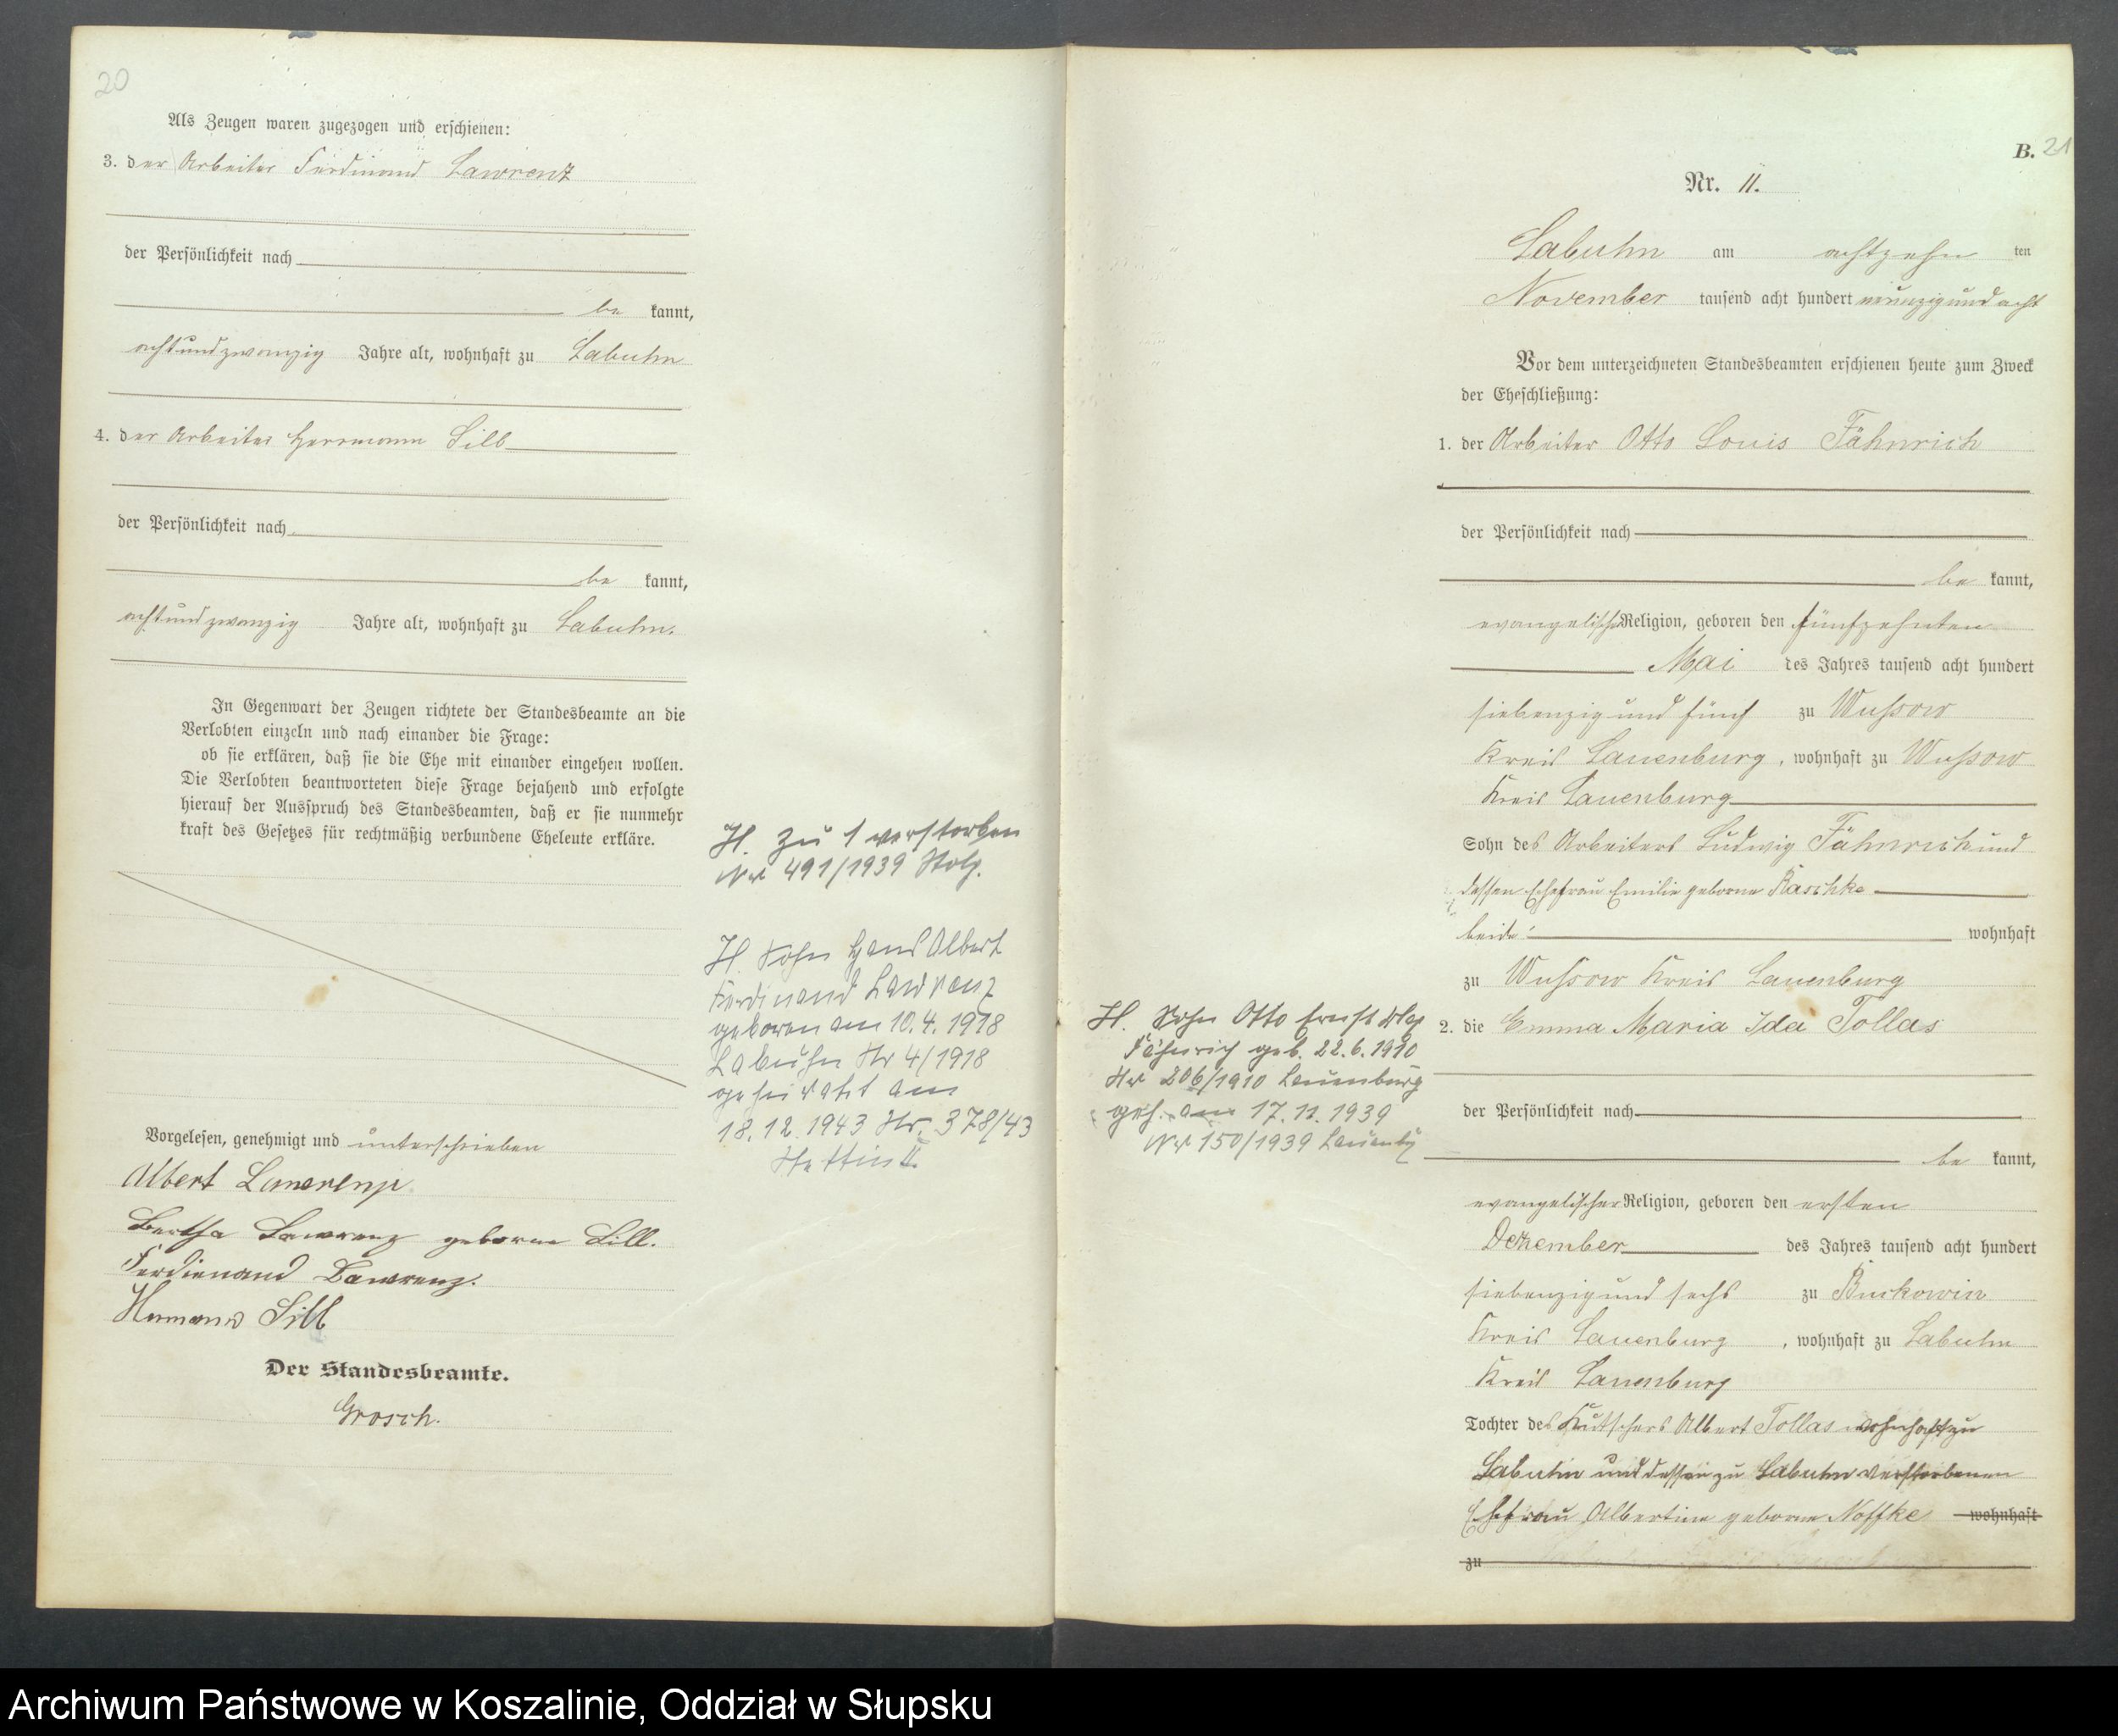 20
Als Zeugen waren zugezogen und erschienen:
3. der Arbeiter Ferdinand Lawrenz
der Persönlichkeit nach
be kannt,
achtundzwanzig Jahre alt, wohnhaft zu Labuhn
4. der Arbeiter Herrmann Sill
der Persönlichkeit nach
be kannt,
achtundzwanzig Jahre alt, wohnhaft zu Labuhn.
In Gegenwart der Zeugen richtete der Standesbeamte an die
Verlobten einzeln und nach einander die Frage:
ob sie erklären, daß sie die Ehe mit einander eingehen wollen.
Die Verlobten beantworteten diese Frage bejahend und erfolgte
hierauf der Ausspruch des Standesbeamten, daß er sie nunmehr
kraft des Gesetzes für rechtmäßig verbundene Eheleute erkläre.
Vorgelesen, genehmigt und unterschrieben
Albert Lawrenz
Bertha Lawrenz geborne Sill.
Ferdienand Lawrenz.
Hermann Sill
Der Standesbeamte.
Grosch.
H. zu 1 verstorben
Nr 491/1939 Stolp.
H. Sohn Hans Albert
Ferdinand Lawrenz
geboren am 10.4.1918
Labuhn Nr 4/1918
geheiratet am
18.12.1943 Nr. 378/43
Stettin II.
B. 21
Nr. 11.
Labuhn am achtzehn ten
November tausend acht hundert neunzig und acht
Vor dem unterzeichneten Standesbeamten erschienen heute zum Zweck
der Eheschließung:
1. der Arbeiter Otto Louis Fähnrich
der Persönlichkeit nach
be kannt,
evangelischer Religion, geboren den fünfzehnten
Mai des Jahres tausend acht hundert
siebenzig und fünf zu Wussow
Kreis Lauenburg, wohnhaft zu Wussow
Kreis Lauenburg
Sohn des Arbeiters Ludwig Fähnrich und
dessen Ehefrau Emilie geborne Raschke
beide wohnhaft
zu Wussow Kreis Lauenburg
2. die Emma Maria Ida Tollas
der Persönlichkeit nach
be kannt,
evangelischer Religion, geboren den ersten
Dezember des Jahres tausend acht hundert
siebenzig und sechs zu Buckowin
Kreis Lauenburg, wohnhaft zu Labuhn
Kreis Lauenburg
Tochter des Kutschers Albert Tollas wohnhaft zu
Labuhn und dessen zu Labuhn verstorbenen
Ehefrau Albertine geborne Noffke wohnhaft
zu
H. Sohn Otto Ernst
Fähnrich geb. 22.6.1910
Nr 206/1910 Lauenburg
geh. am 17.11.1939
Nr 150/1939 Lauenbg
Archiwum Państwowe w Koszalinie, Oddział w Słupsku